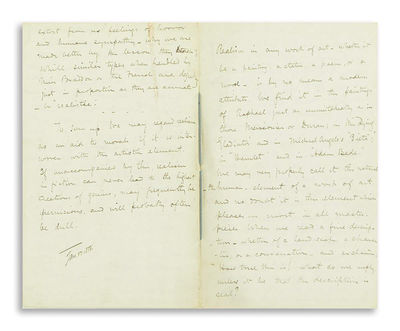 extort from us feelings of horror
and human sympathy. Why we are
made better by the lesson they teach;
while similar types when handled by
Miss Braddon or the French are
just in proportion as they are accurate
realistic.
To sum up. We may regard realism
as an aid to morals, if it is inter-
woven with the artistic element.
If unaccompanied by this realism
in fiction can never lead to the highest
creations of genius, may frequently be
pernicious, and will probably often
be dull.
Realism in any work of art - whether it
be a painting, a statue, a poem, or a
novel - is by no means a modern
attribute. We find it in the paintings
of Raphael just as unmistakably as in
those Meissonier or Doré; in "The Dying
Gladiator" and in "Michael Angelo's Pietà"
in "Hamlet" and in "Adam Bede".
We may very properly call it the natural
the human element of a work of art
and no doubt it is this element which
pleases most in all master-
pieces. When we read a fine descrip-
tion - whether of a landscape, a charac-
ter, or a conversation - and exclaim
"How true this is", what do we imply
unless it be that the description is
real?